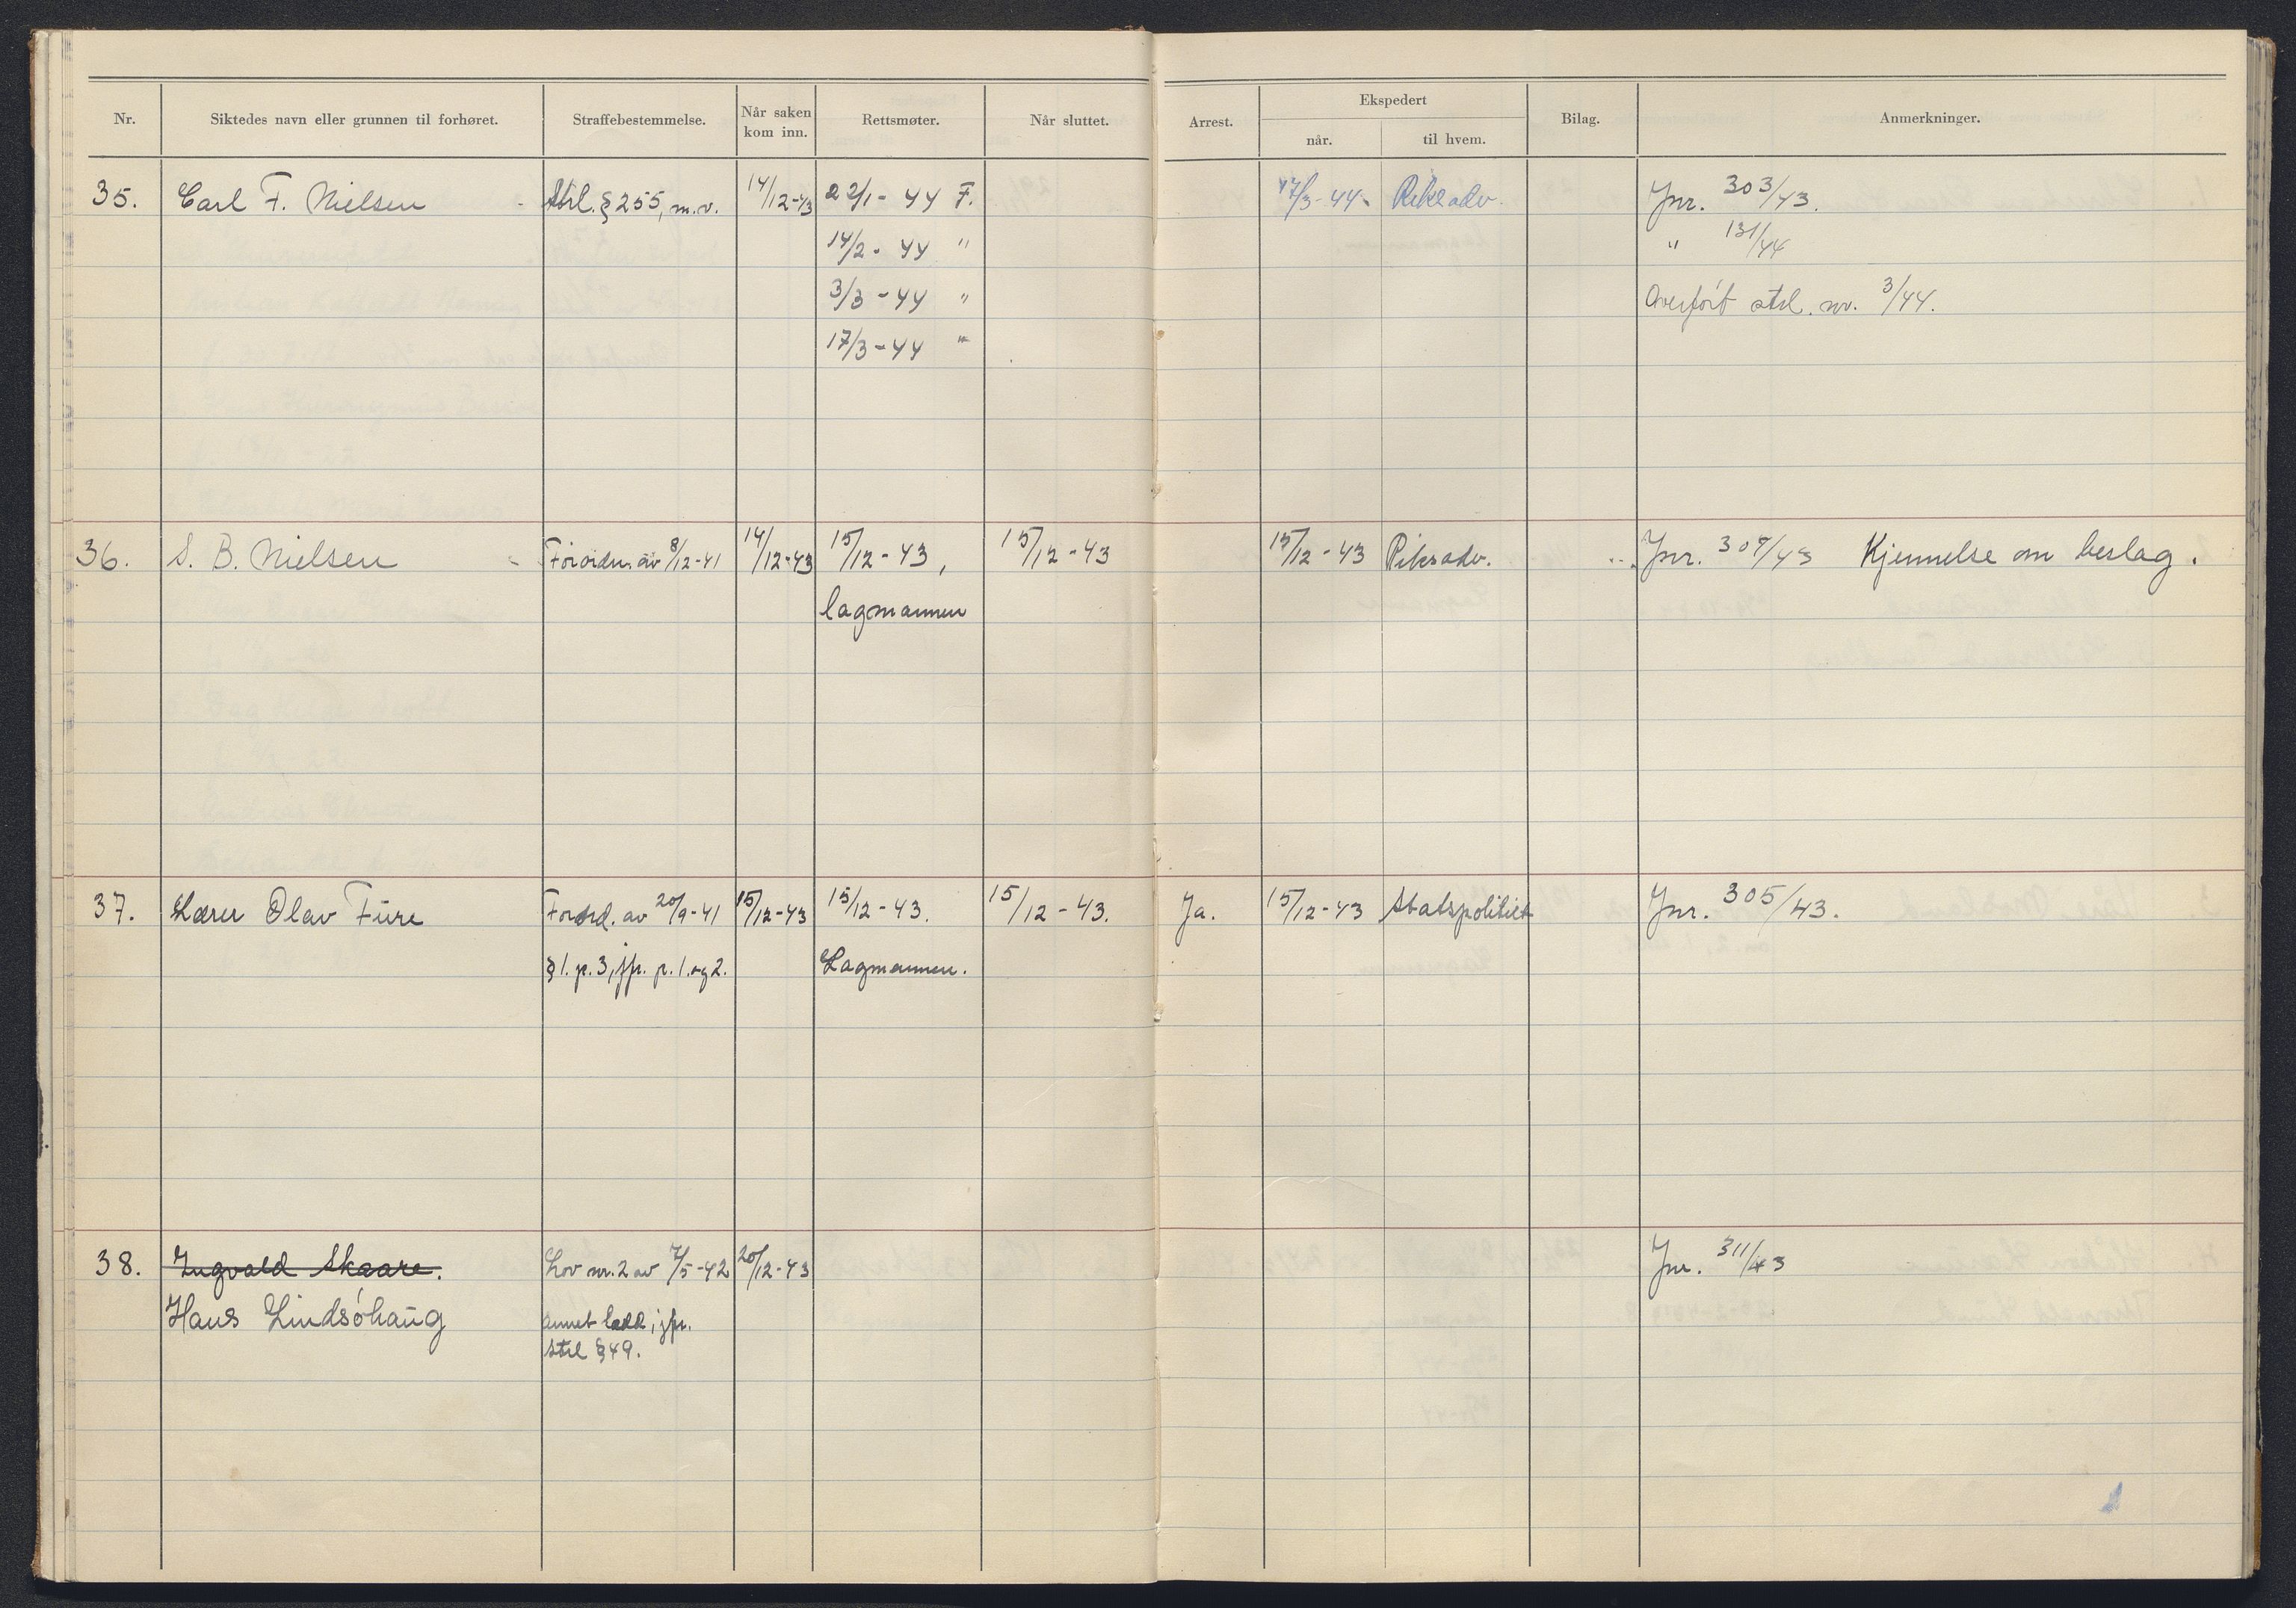 Nr. Siktedes navn eller grunnen til forhøret. Straffebestemmelse. Når saken kom inn. Rettsmøter. Når sluttet. Arrest. Ekspedert når. til hvem. Bilag. Anmerkninger.
35. Carl F. Nielsen - Strl. § 255, m.v. 14/12-43 22/1-44 F. 17/3-44. Riksadv. Jnr. 303/43.
14/2-44 " " 131/44
3/3-44 " Overført strl. nr. 3/44.
17/3-44 "
36. S. B. Nielsen - Forordn. av 8/12-41 14/12-43 15/12-43, 15/12-43 15/12-43 Riksadv. Jnr. 307/43 Kjennelse om beslag.
lagmannen
37. Lærer Olav Fure Forord. av 20/9-41 15/12-43 15/12-43. 15/12-43. Ja. 15/12-43 Statspolitiet Jnr. 305/43.
§ 1. p. 3, jfr. p. 1. og 2. Lagmannen.
38. Ingvald Skaare. Lov nr. 2 av 7/5-42 20/12-43 Jnr. 311/43
Hans Lindsóhaug annet ledd, jfr.
strl § 49.